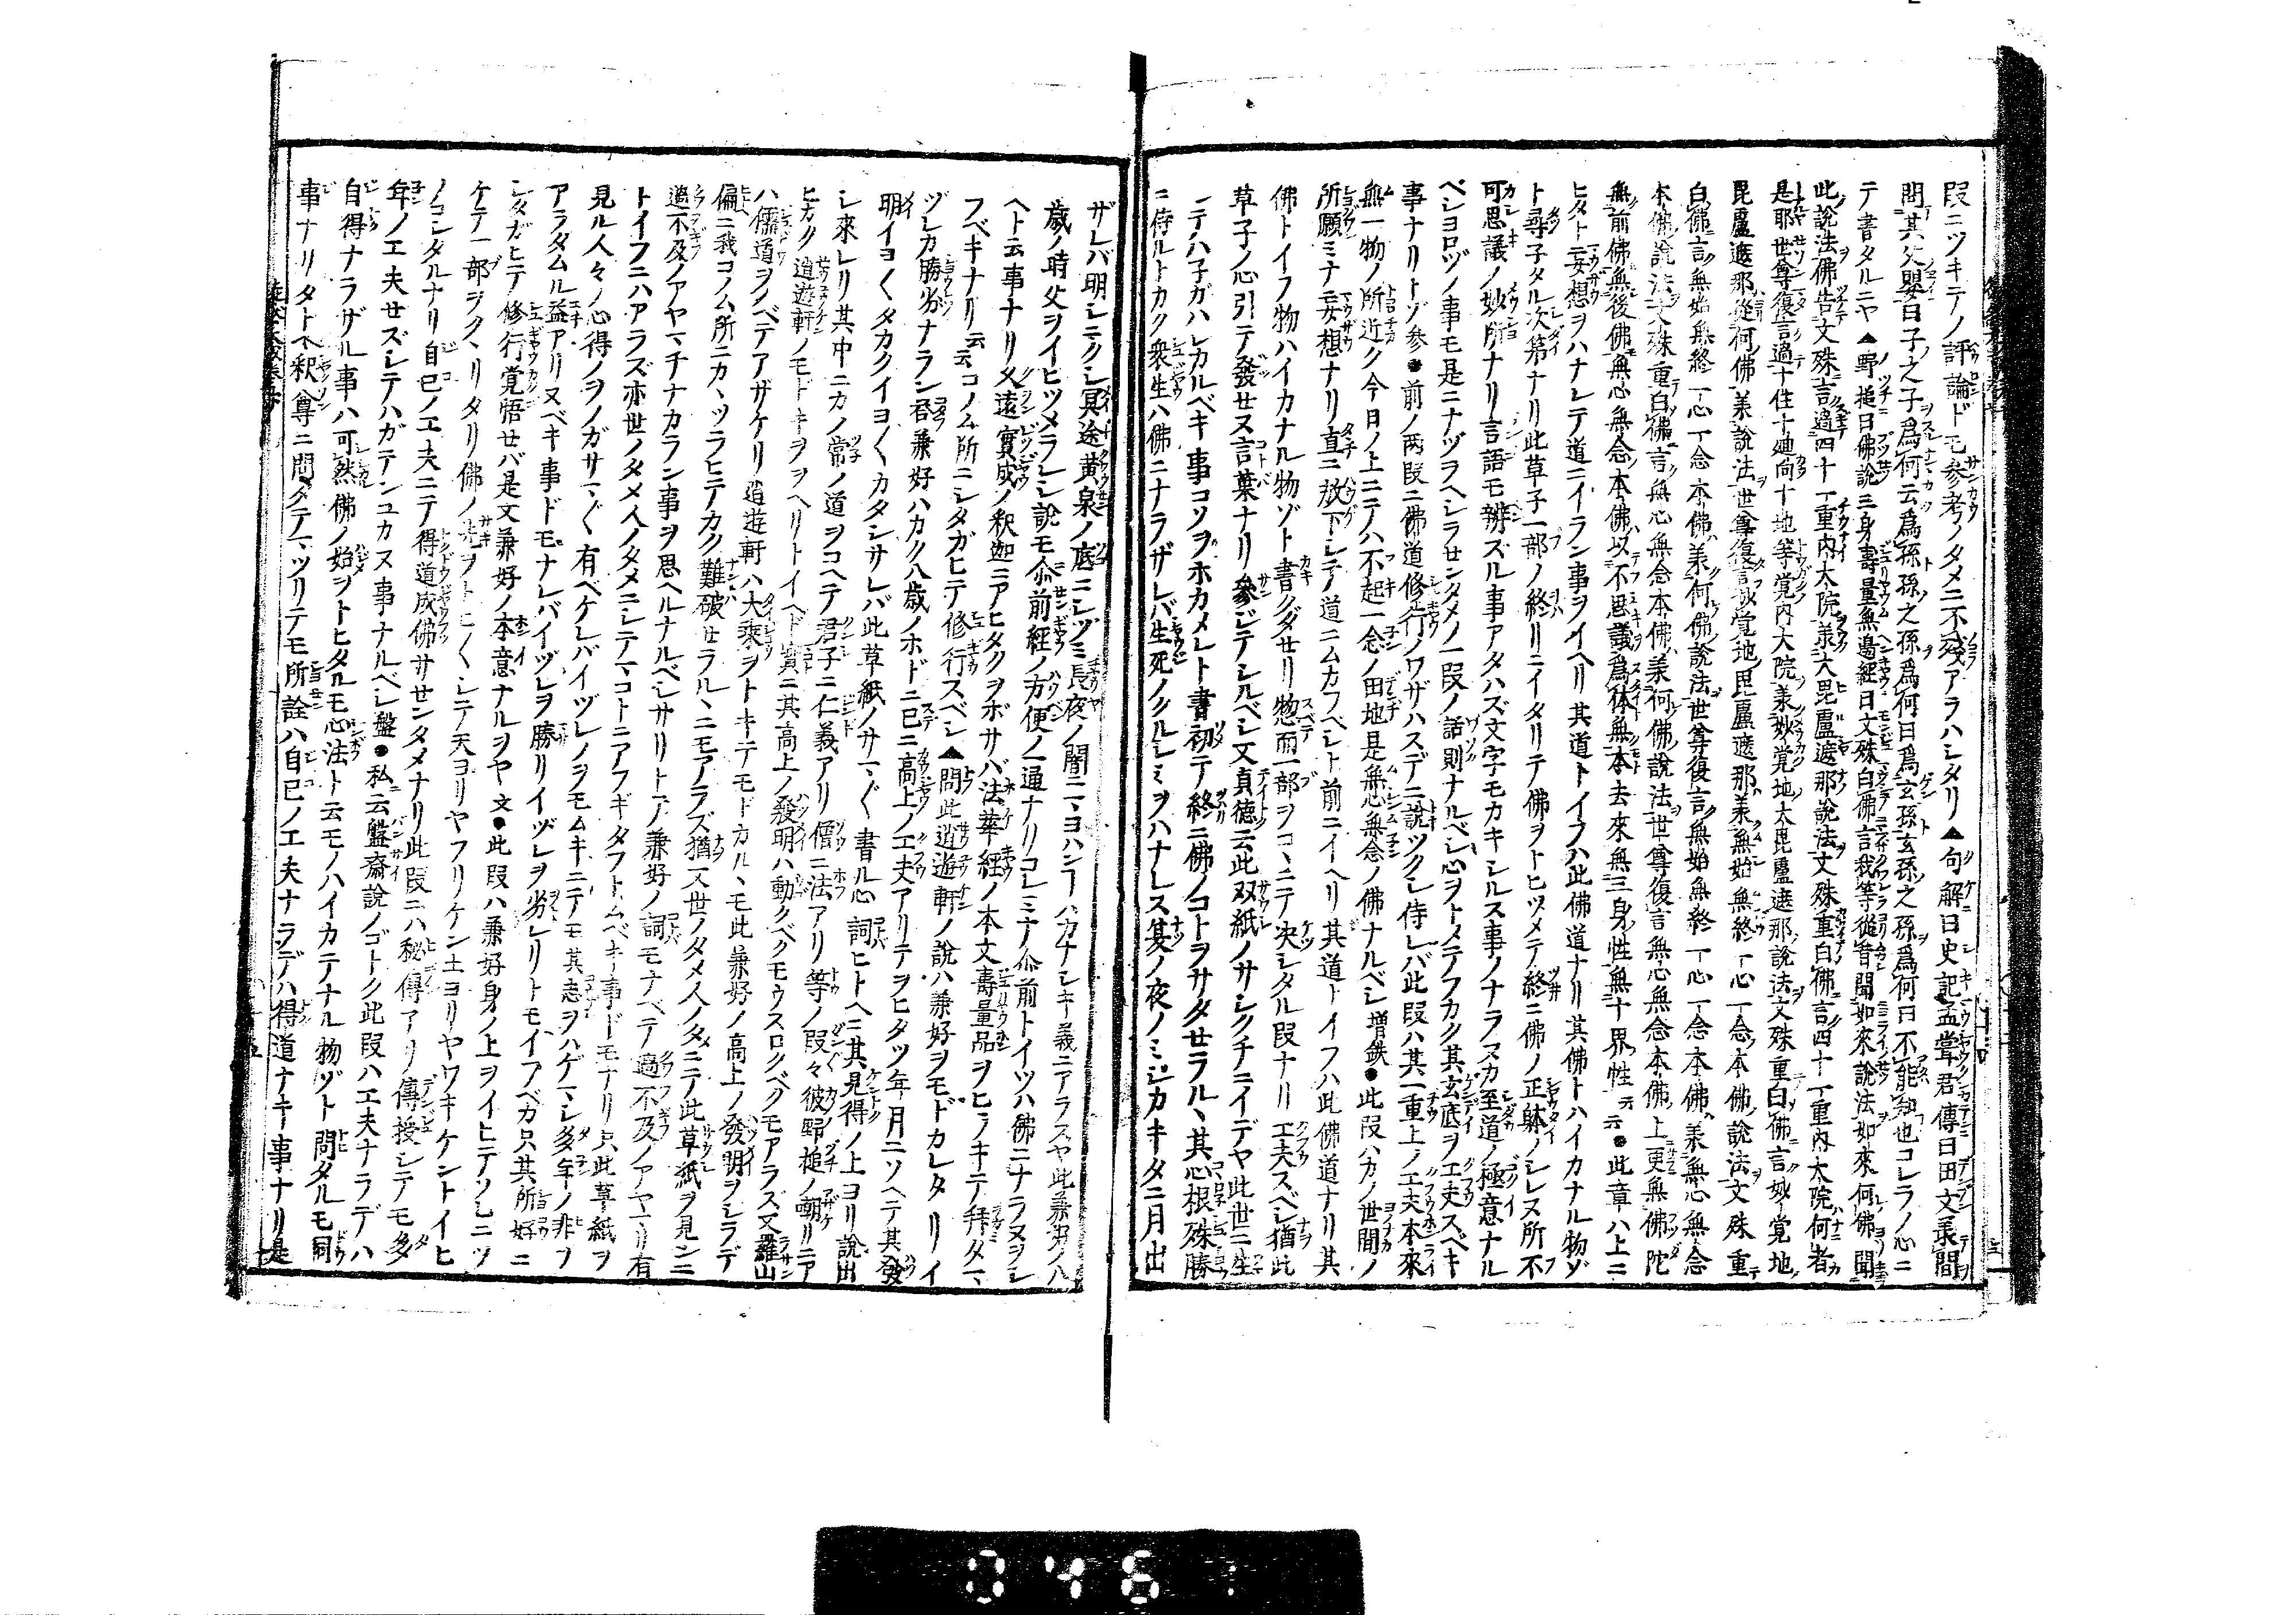 段ニツキテノ評論ドモ参考ノタメニ不残アラハシタリ▲句解曰史記孟嘗君傳曰田文承間
問其父嬰曰子之子爲何云爲孫孫之孫爲何曰爲玄孫玄孫之孫爲何曰不能知也コレラノ心ニ
テ書タルニヤ▲野槌曰佛説三身壽量無邊經曰文殊白佛言我等從昔聞如來説法如來何佛聞
此説法佛告文殊言過四十一重内大院業大毘盧遮那説法文殊重白佛言四十一重内大院何者
是耶世尊復言過十住十廻向十地等覚内大院業妙覚地大毘盧遮那説法文殊重白佛言妙覚地
毘盧遮那從何佛業説法世尊復言妙覚地毘盧遮那業無始無終一心一念本佛説法文殊重
白佛言無始無終一心一念本佛業何佛説法世尊復言無始無終一心一念本佛業無心無念
本佛説法文殊重白佛言無心無念本佛業何佛説法世尊復言無心無念本佛上更無佛陀
無前佛無後佛無心無念本佛以不思議爲体無本去來無三身性無十界性云云●此章ハ上ニ
ヒタト妄想ヲハナレテ道ニイラン事ヲイヘリ其道トイフハ此佛道ナリ其佛トハイカナル物ゾ
ト尋子タル次第ナリ此草子一部ノ終リニイタリテ佛ヲトヒツメテ終ニ佛ノ正躰ノシレヌ所不
可思議ノ妙所ナリ言語モ辨ズル事アタハズ文字モカキシルス事ノナラヌカ至道ノ極意ナル
ベシヨロヅノ事モ是ニナヅラヘシラセンタメノ一段ノ話則ナルベシ心ヲトメテフカク其玄底ヲ工夫スベキ
事ナリトゾ参●前ノ両段ニ佛道修行ノワザハスデニ説ツクシ侍レバ此段ハ其一重上ノ工夫本來
無一物ノ所近ク今日ノ上ニテハ不起一念ノ田地是無心無念ノ佛ナルベシ増鉄●此段ハカノ世間ノ
所願ミナ妄想ナリ直ニ放下シテ道ニムカフベシト前ニイヘリ其道トイフハ此佛道ナリ其
佛トイフ物ハイカナル物ゾト書クダセリ惣而一部ヲコヽニテ決シタル段ナリ工夫スベシ猶此
草子ノ心引テ發セヌ言葉ナリ参ジテシルベシ又貞徳云此双紙ノサレクチニイデヤ此世ニ生
レテハ子ガハレカルベキ事コソヲホカメレト書初テ終ニ佛ノコトヲサタセラルヽ其心根殊勝
ニ侍ルトカク衆生ハ佛ニナラザレバ生死ノクルシミヲハナレス夏ノ夜ノミジカキタニ月出
ザレバ明シニクシ冥途黄泉ノ底ニシヅミ長夜ノ闇ニヽヨハンコハカナシキ義ニアラスヤ此兼好ノ八
歳ノ時父ヲイヒツメラレシ説モ尒前經ノ方便ノ一通ナリコレミナ尒前トイツハ佛ニナラヌヲシ
ヘト云事ナリ久遠實成ノ釈迦ニアヒタクヲボサバ法華經ノ本文壽量品ヲヒラキテ拜タマ
フベキナリ云云コノム所ニシタガヒテ修行スベシ▲問此逍遊軒ノ説ハ兼好ヲモドカレタリイ
ヅレカ勝劣ナラン君兼好ハカク八歳ノホドニ已ニ高上ノ工夫アリテヲヒタツ年月ニソヘテ其發
明イヨ〱タカクイヨ〱カタンサレバ此草紙ノサマ〲書ル心詞ヒトヘニ其見得ノ上ヨリ説出
シ來レリ其中ニカノ常ノ道ヲコヘテ君子ニ仁義アリ僧ニ法アリ等ノ段々彼野槌ノ嘲リニア
ヒカク逍遊軒ノモドキヲヲヘリトイヘド實ニ其高上ノ發明ハ動クベクモウスロクベクモアラズ又羅山
ハ儒道ヲノベテアザケリ逍遊軒ハ大乘ヲトキテモドカルヽモ此兼好ノ高上ノ發明ヲシラデ
偏ニ我コノム所ニカヽツラヒテカク難破セラルヽニモアラズ猶又世ノタメ人ノタメニテ此草紙ヲ見ンニ
過不及ノアヤマチナカラン事ヲ思ヘルナルベシサリトテ兼好ノ詞モナベテ過不及ノアヤマリ有
トイフニハアラズ亦世ノタメ人ノタメニシテマコトニアフギタフトムベキ事ドモナリ只此草紙ヲ
見ル人々ノ心得ノヲノガサマ〲有ベケレバイヅレノヲモムキニテモ其志ヲハゲマシ多年ノ非ヲ
アラタムル益アリヌベキ事ドモナレバイヅレヲ勝リイヅレヲ劣レリトモイフベカ只其所好ニ
シタガヒテ修行覚悟セバ是文兼好ノ本意ナルヲヤ文●此段ハ兼好身ノ上ヲイヒテソレニツ
ケテ一部ヲクヽリタリ佛ノ先ヲトヒ〱シテ天ヨリヤフリケン土ヨリヤワキケントイヒ
ノコシタルナリ自已ノ工夫ニテ得道成佛サセンタメナリ此段ニハ秘得アリ傳授シテモ多
年ノ工夫セズシテハガテンユカヌ事ナルベシ盤●私云盤斎説ノゴトク此段ハ工夫ナラデハ
自得ナラザル事ハ可然佛ノ始ヲトヒタルモ心法ト云モノハイカテナル物ゾト問タルモ同
事ナリタトヘ釈尊ニ問タテマツリテモ所詮ハ自已ノ工夫ナラデハ得道ナキ事ナリ是